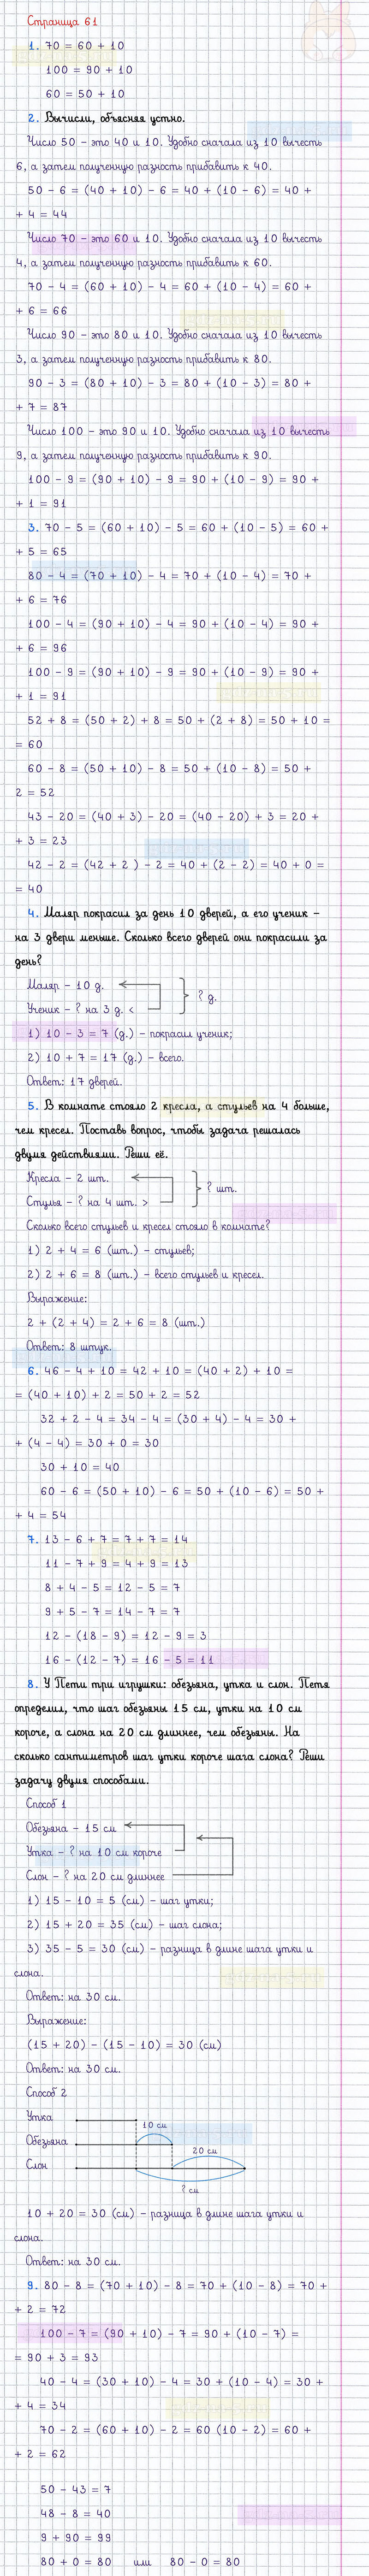 Страница 61
1. 70 = 60 + 10
100 = 90 + 10
60 = 50 + 10
2. Вычисли, объясняя устно.
Число 50 – это 40 и 10. Удобно сначала из 10 вычесть
6, а затем полученную разность прибавить к 40.
50 – 6 = (40 + 10) – 6 = 40 + (10 – 6) = 40 +
+ 4 = 44
Число 70 – это 60 и 10. Удобно сначала из 10 вычесть
4, а затем полученную разность прибавить к 60.
70 – 4 = (60 + 10) – 4 = 60 + (10 – 4) = 60 +
+ 6 = 66
Число 90 – это 80 и 10. Удобно сначала из 10 вычесть
3, а затем полученную разность прибавить к 80.
90 – 3 = (80 + 10) – 3 = 80 + (10 – 3) = 80 +
+ 7 = 87
Число 100 – это 90 и 10. Удобно сначала из 10 вычесть
9, а затем полученную разность прибавить к 90.
100 – 9 = (90 + 10) – 9 = 90 + (10 – 9) = 90 +
+ 1 = 91
3. 70 – 5 = (60 + 10) – 5 = 60 + (10 – 5) = 60 +
+ 5 = 65
80 – 4 = (70 + 10) – 4 = 70 + (10 – 4) = 70 +
+ 6 = 76
100 – 4 = (90 + 10) – 4 = 90 + (10 – 4) = 90 +
+ 6 = 96
100 – 9 = (90 + 10) – 9 = 90 + (10 – 9) = 90 +
+ 1 = 91
52 + 8 = (50 + 2) + 8 = 50 + (2 + 8) = 50 + 10 =
= 60
60 – 8 = (50 + 10) – 8 = 50 + (10 – 8) = 50 +
2 = 52
43 – 20 = (40 + 3) – 20 = (40 – 20) + 3 = 20 +
+ 3 = 23
42 – 2 = (42 + 2 ) – 2 = 40 + (2 – 2) = 40 + 0 =
= 40
4. Маляр покрасил за день 10 дверей, а его ученик –
на 3 двери меньше. Сколько всего дверей они покрасили за
день?
Маляр – 10 д.
? д.
Ученик – ? на 3 д. <
1) 10 – 3 = 7 (д.) – покрасил ученик;
2) 10 + 7 = 17 (д.) – всего.
Ответ: 17 дверей.
5. В комнате стояло 2 кресла, а стульев на 4 больше,
чем кресел. Поставь вопрос, чтобы задача решалась
двумя действиями. Реши её.
Кресла – 2 шт.
? шт.
Стулья – ? на 4 шт. >
Сколько всего стульев и кресел стояло в комнате?
1) 2 + 4 = 6 (шт.) – стульев;
2) 2 + 6 = 8 (шт.) – всего стульев и кресел.
Выражение:
2 + (2 + 4) = 2 + 6 = 8 (шт.)
Ответ: 8 штук.
6. 46 – 4 + 10 = 42 + 10 = (40 + 2) + 10 =
= (40 + 10) + 2 = 50 + 2 = 52
32 + 2 – 4 = 34 – 4 = (30 + 4) – 4 = 30 +
+ (4 – 4) = 30 + 0 = 30
30 + 10 = 40
60 – 6 = (50 + 10) – 6 = 50 + (10 – 6) = 50 +
+ 4 = 54
7. 13 – 6 + 7 = 7 + 7 = 14
11 – 7 + 9 = 4 + 9 = 13
8 + 4 – 5 = 12 – 5 = 7
9 + 5 – 7 = 14 – 7 = 7
12 – (18 – 9) = 12 – 9 = 3
16 – (12 – 7) = 16 – 5 = 11
8. У Пети три игрушки: обезьяна, утка и слон. Петя
определил, что шаг обезьяны 15 см, утки на 10 см
короче, а слона на 20 см длиннее, чем обезьяны. На
сколько сантиметров шаг утки короче шага слона? Реши
задачу двумя способами.
Способ 1
Обезьяна – 15 см
Утка – ? на 10 см короче
Слон – ? на 20 см длиннее
1) 15 – 10 = 5 (см) – шаг утки;
2) 15 + 20 = 35 (см) – шаг слона;
3) 35 – 5 = 30 (см) – разница в длине шага утки и
слона.
Ответ: на 30 см.
Выражение:
(15 + 20) – (15 – 10) = 30 (см)
Ответ: на 30 см.
Способ 2
Утка
10 см
Обезьяна
20 см
Слон
? см
10 + 20 = 30 (см) – разница в длине шага утки и
слона.
Ответ: на 30 см.
9. 80 – 8 = (70 + 10) – 8 = 70 + (10 – 8) = 70 +
+ 2 = 72
100 – 7 = (90 + 10) – 7 = 90 + (10 – 7) =
= 90 + 3 = 93
40 – 4 = (30 + 10) – 4 = 30 + (10 – 4) = 30 +
+ 4 = 34
70 – 2 = (60 + 10) – 2 = 60 (10 – 2) = 60 +
+ 2 = 62
50 – 43 = 7
48 – 8 = 40
9 + 90 = 99
80 + 0 = 80 или 80 – 0 = 80